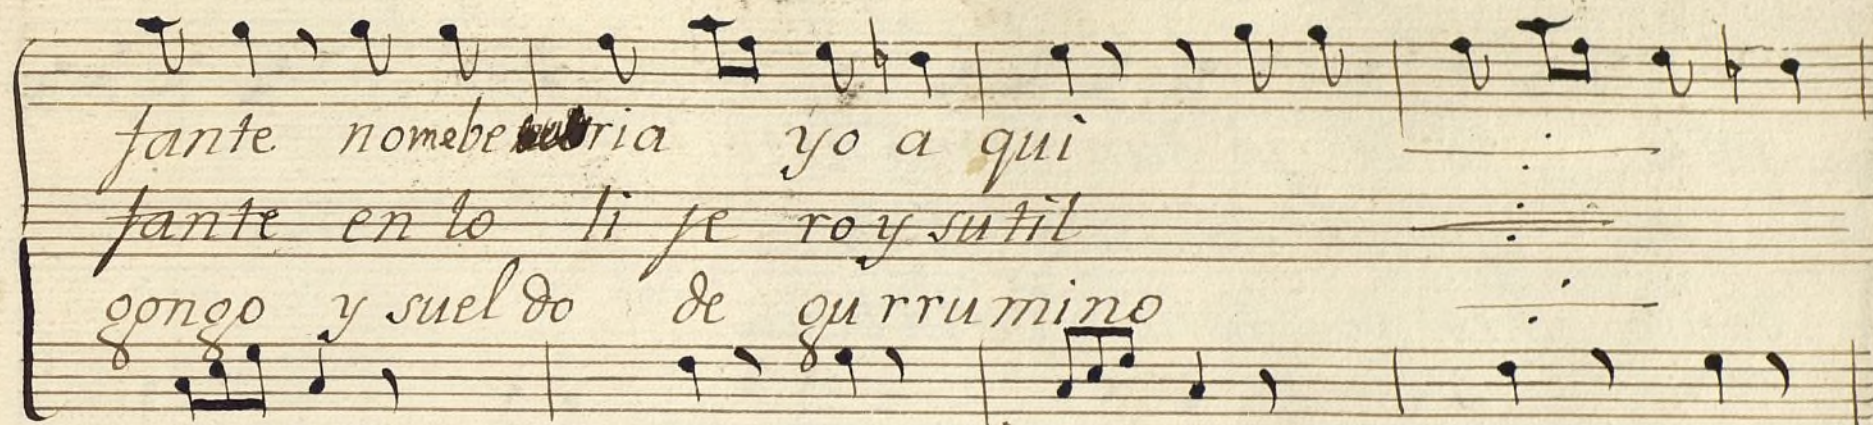 fante nomebe ria yo a qui
fante en lo li je ro y sutil
gongo y suel do de gurrumino